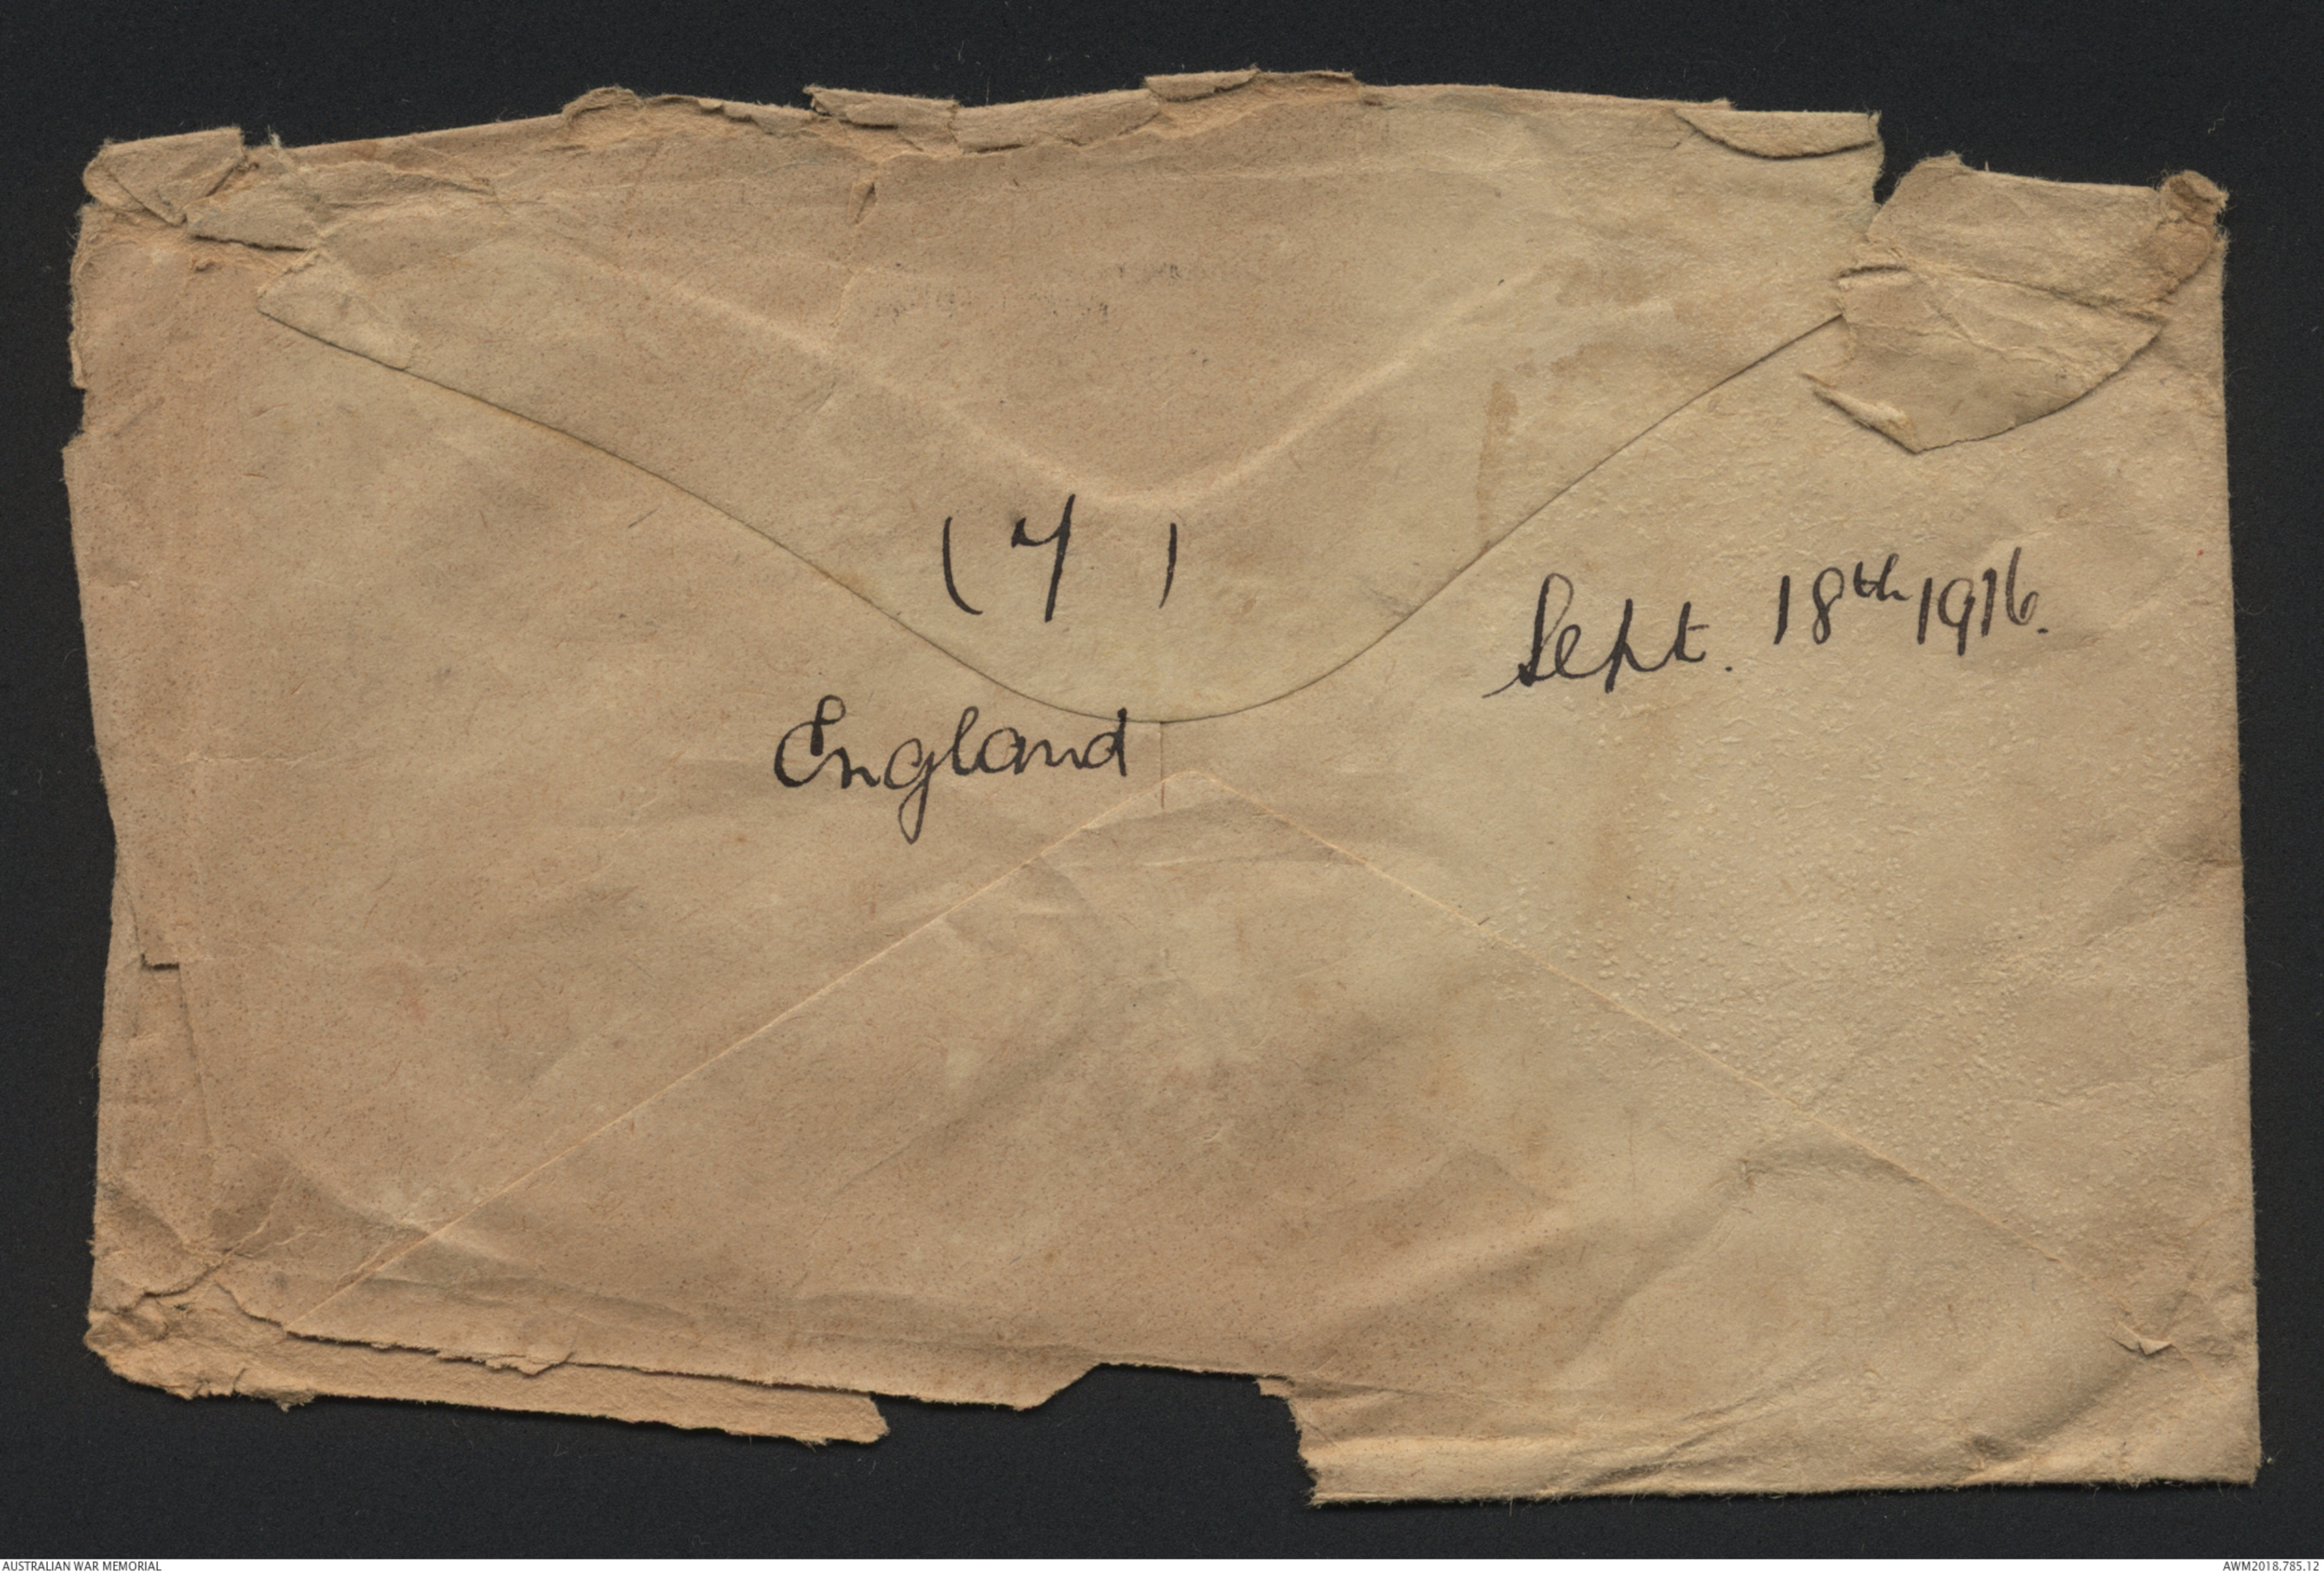 (7)
Sept. 18th 1916.
England
AUSTRALIAN WAR MEMORIAL
AWM2018.785.12